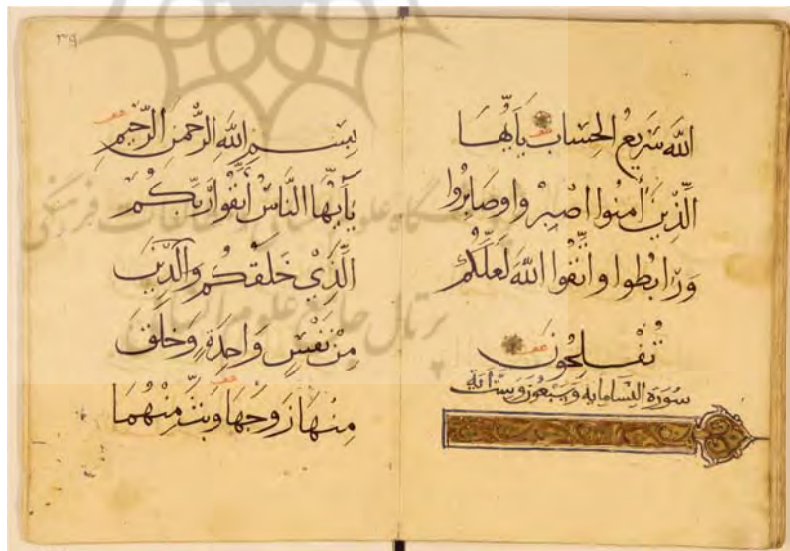 اللَّهَ سَرِيعُ الْحِسَابِ يَا يُّهَا
الَّذِينَ أَمَنُوا اصْبِرُوا وَصَابِرُوا
وَرَابِطُوا وَاتَّقُوا اللَّهَ لَعَلَّكُمْ
تُفْلِحُونَ
سُورَة النِّسَا مايه وَسَبْعُون وَسِتّ ايَة
٣٩
بِسْمِ اللَّهِ الرَّحْمَنِ الرَّحِيمِ
يَا أَيُّهَا النَّاسُ اتَّقُوا رَبَّكُمُ
الَّذِيْ خَلَقَكُمْ وَالَّذِينَ
مِنْ نَفْسٍ وَاحِدَةٍ وَخَلَقَ
مِنْهَا زَوْجَهَا وَبَثَّ مِنْهُمَا
پرتال جامع علوم انسانی